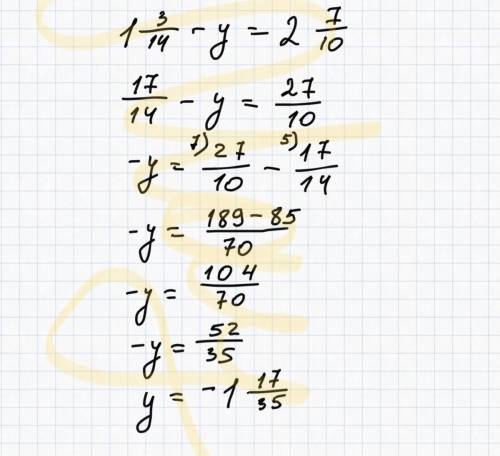 1 3/14 - y = 2 7/10
17/14 - y = 27/10
-y = 7) 27/10 - 5) 17/14
-y = 189-85/70
-y = 104/70
-y = 52/35
y = -1 17/35